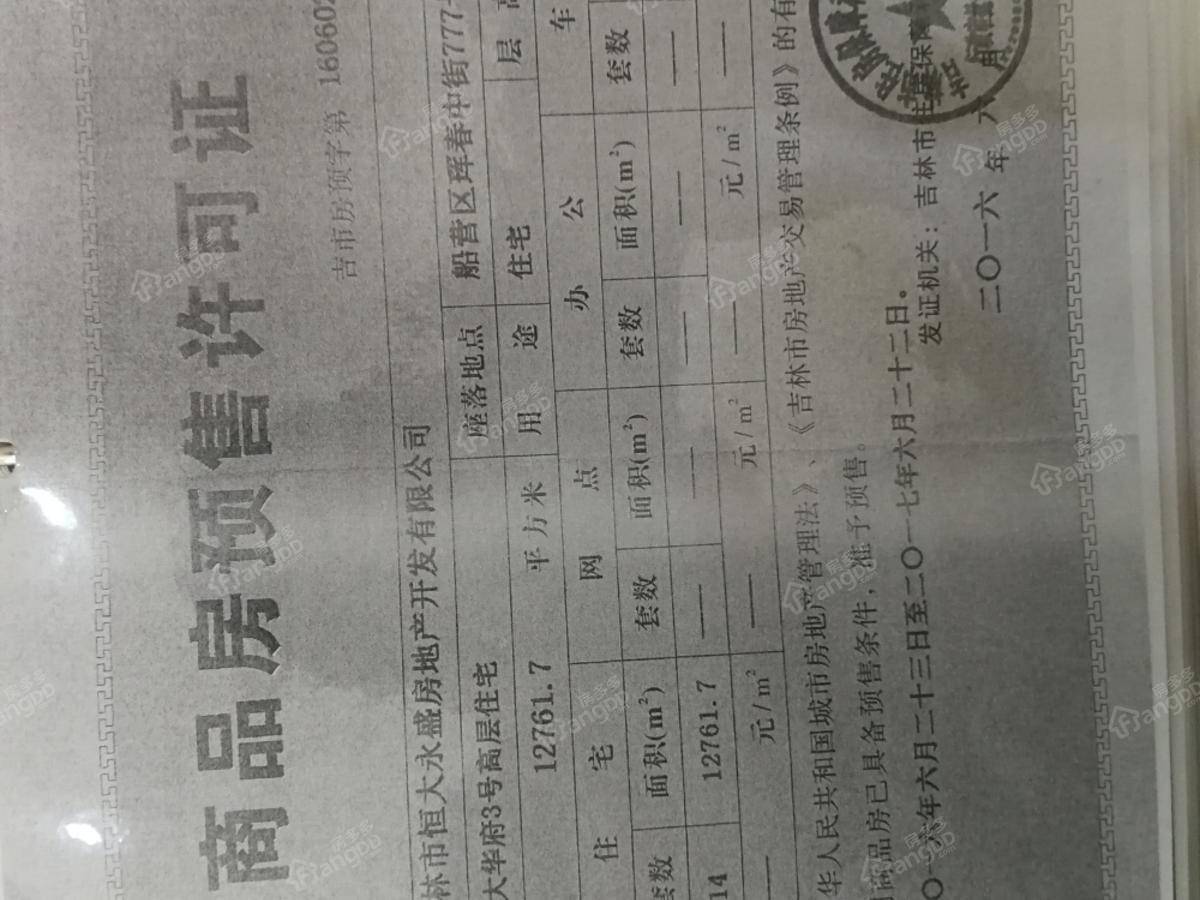 商品房预售许可证
吉市房预字第 160602
林市恒大永盛房地产开发有限公司
座落地点 船营区珲春中街777
大华府3号高层住宅
用途 住宅 层
12761.7 平方米
住宅 网点 办公 车
套数 面积(m²) 套数 面积(m²) 套数 面积(m²) 套数
14 12761.7 —— —— —— —— ——
—— 元/m² —— 元/m² —— 元/m² ——
华人民共和国城市房地产管理法》、《吉林市房地产交易管理条例》的有
商品房已具备预售条件，准予预售。
〇一六年六月二十三日至二〇一七年六月二十二日。
发证机关：吉林市住房保障
二〇一六年六月
房多多
angDD